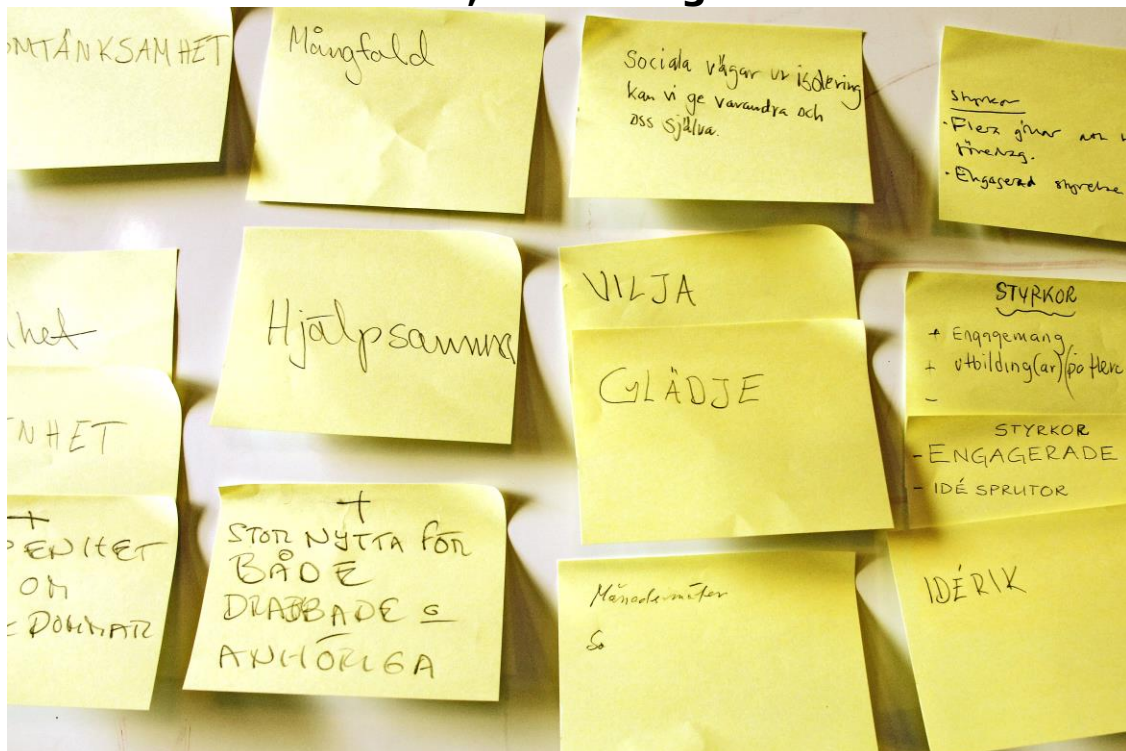 OMTÄNKSAMHET
Mångfald
Sociala vägar ur isolering
kan vi ge varandra och
oss själva.
Styrkor
- Flera
företag.
- Engagerad styrelse
het
Hjälpsamma
VILJA
GLÄDJE
STYRKOR
+ Engagemang
+ utbilding(ar) (på flera
-
STYRKOR
- ENGAGERADE
- IDÉ SPRUTOR
NHET
+
PENHET
OM
DOMMAR
+
STOR NYTTA FÖR
BÅDE
DRABBADE
ANHÖRIGA
Månadsmöten
So
IDÉRIK